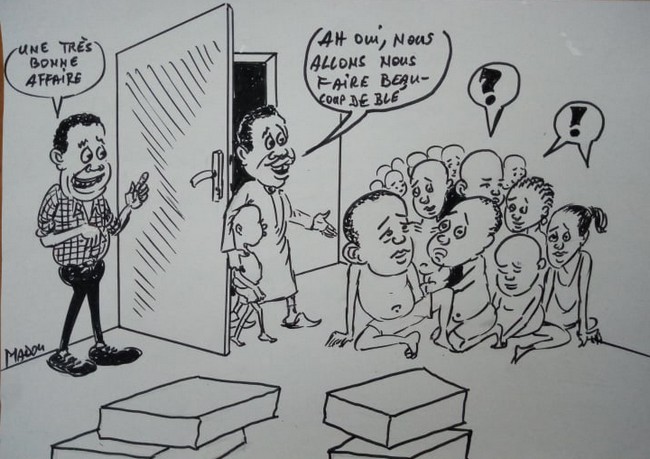 UNE TRÈS
BONNE
AFFAIRE
AH OUI, NOUS
ALLONS NOUS
FAIRE BEAU-
COUP DE BLÉ
!
!
MADOU